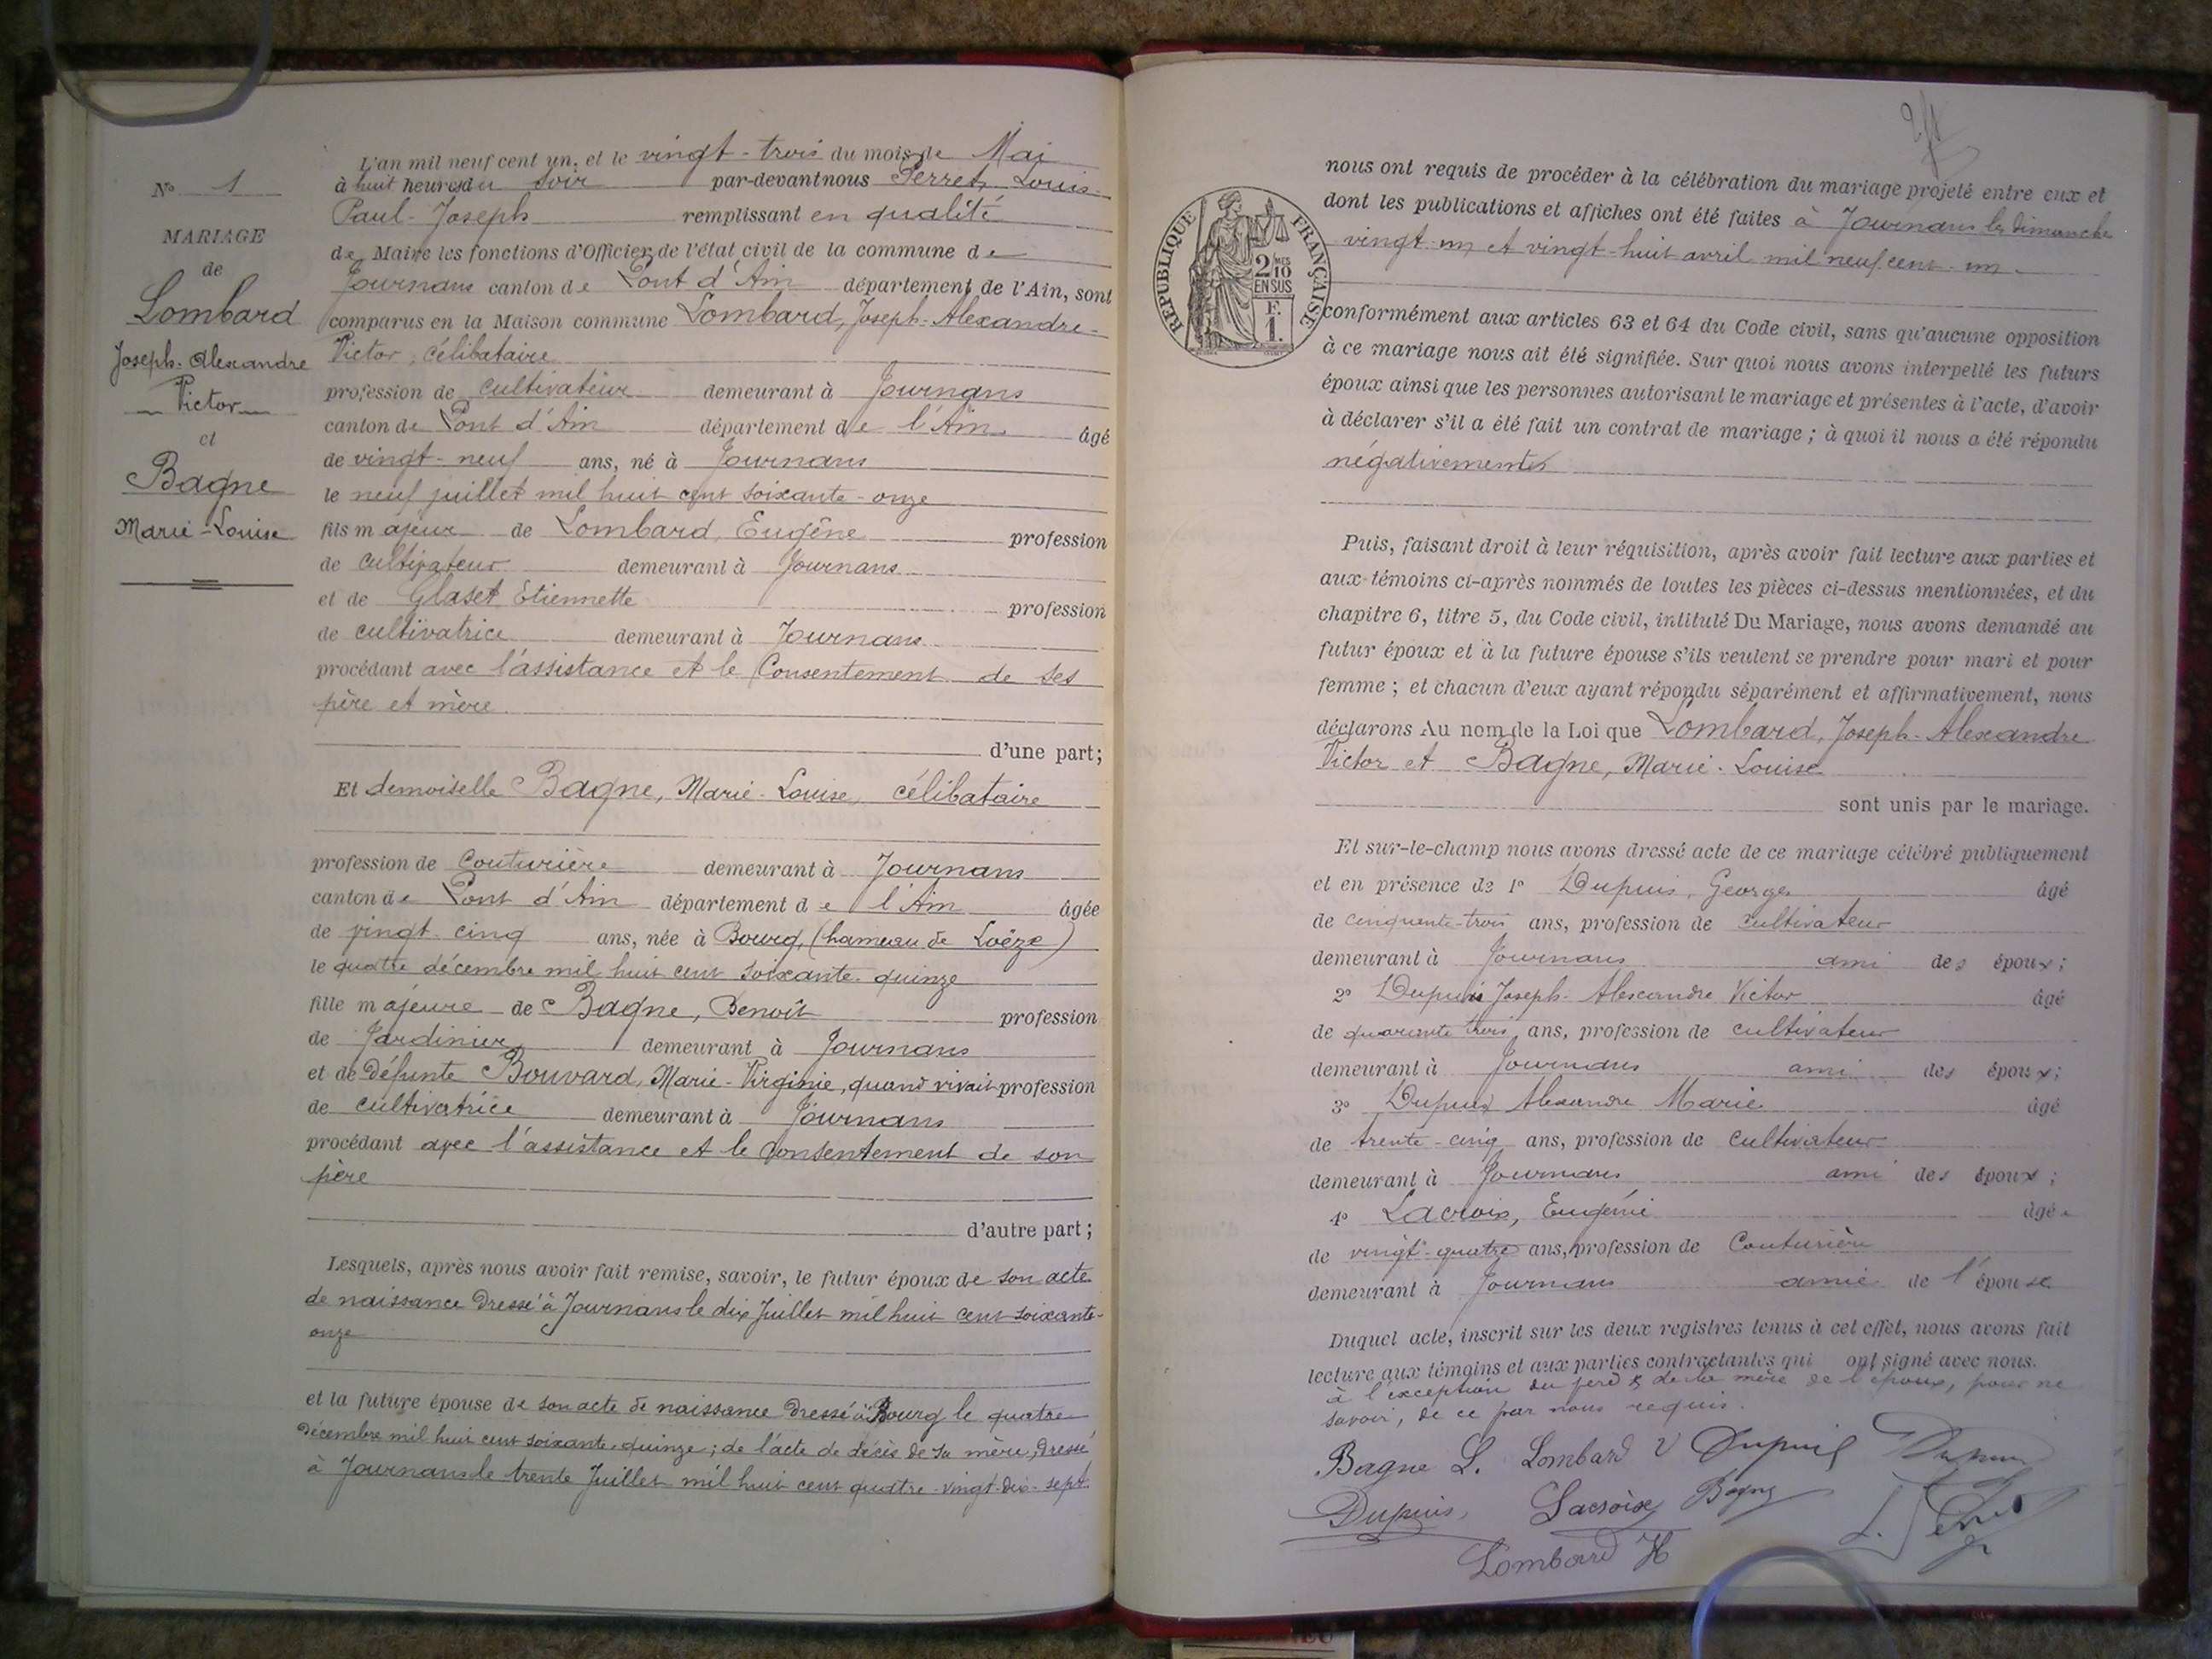 N° 1
MARIAGE
de
Lombard
Joseph-Alexandre
Victor
et
Bagne
Marie-Louise
L'an mil neuf cent un, et le vingt-trois du mois de Mai
à huit heures du soir par-devant nous Perret, Louis-
Paul-Joseph remplissant en qualité
de Maire les fonctions d'Officier de l'état civil de la commune de
Journans canton de Pont d'Ain département de l'Ain, sont
comparus en la Maison commune Lombard, Joseph-Alexandre-
Victor, célibataire
profession de cultivateur demeurant à Journans
canton de Pont d'Ain département de l'Ain âgé
de vingt-neuf ans, né à Journans
le neuf juillet mil huit cent soixante-onze
fils majeur de Lombard, Eugène profession
de cultivateur demeurant à Journans
et de Glaset Etiennette profession
de cultivatrice demeurant à Journans
procédant avec l'assistance et le Consentement de ses
père et mère
d'une part;
Et demoiselle Bagne, Marie-Louise, célibataire
profession de couturière demeurant à Journans
canton de Pont d'Ain département de l'Ain âgée
de vingt-cinq ans, née à Bourg, (hameau de Loëze)
le quatre décembre mil huit cent soixante-quinze
fille majeure de Bagne, Benoît profession
de Jardinier demeurant à Journans
et de défunte Bouvard, Marie-Virginie, quand vivait profession
de cultivatrice demeurant à Journans
procédant avec l'assistance et le consentement de son
père
d'autre part;
Lesquels, après nous avoir fait remise, savoir, le futur époux de son acte
de naissance dressé à Journans le dix Juillet mil huit cent soixante-
onze
et la future épouse de son acte de naissance dressé à Bourg le quatre
décembre mil huit cent soixante-quinze; de l'acte de décès de sa mère, dressé
à Journans le trente Juillet mil huit cent quatre-vingt-dix-sept.
RÉPUBLIQUE FRANÇAISE
2 MES
10
EN SUS
F.
1.
nous ont requis de procéder à la célébration du mariage projeté entre eux et
dont les publications et affiches ont été faites à Journans les dimanche
vingt-un et vingt-huit avril mil neuf cent-un
conformément aux articles 63 et 64 du Code civil, sans qu'aucune opposition
à ce mariage nous ait été signifiée. Sur quoi nous avons interpellé les futurs
époux ainsi que les personnes autorisant le mariage et présentes à l'acte, d'avoir
à déclarer s'il a été fait un contrat de mariage; à quoi il nous a été répondu
négativement
Puis, faisant droit à leur réquisition, après avoir fait lecture aux parties et
aux témoins ci-après nommés de toutes les pièces ci-dessus mentionnées, et du
chapitre 6, titre 5, du Code civil, intitulé Du Mariage, nous avons demandé au
futur époux et à la future épouse s'ils veulent se prendre pour mari et pour
femme; et chacun d'eux ayant répondu séparément et affirmativement, nous
déclarons Au nom de la Loi que Lombard, Joseph-Alexandre
Victor et Bagne, Marie-Louise
sont unis par le mariage.
Et sur-le-champ nous avons dressé acte de ce mariage célébré publiquement
et en présence de 1° Dupuis, Georges âgé
de cinquante-trois ans, profession de cultivateur
demeurant à Journans ami des époux;
2° Dupuis Joseph-Alexandre Victor âgé
de quarante trois ans, profession de cultivateur
demeurant à Journans ami des époux;
3° Dupuis Alexandre Marie âgé
de trente-cinq ans, profession de cultivateur
demeurant à Journans ami des époux;
4° Lacroix, Eugénie âgée
de vingt-quatre ans, profession de Couturière
demeurant à Journans amie de l'épouse
Duquel acte, inscrit sur les deux registres tenus à cet effet, nous avons fait
lecture aux témoins et aux parties contractantes qui ont signé avec nous.
à l'exception du père & de la mère de l'époux, pour ne
savoir, de ce par nous requis.
Bagne L. Lombard V Dupuis
Dupuis Lacroix Bagne
Lombard H